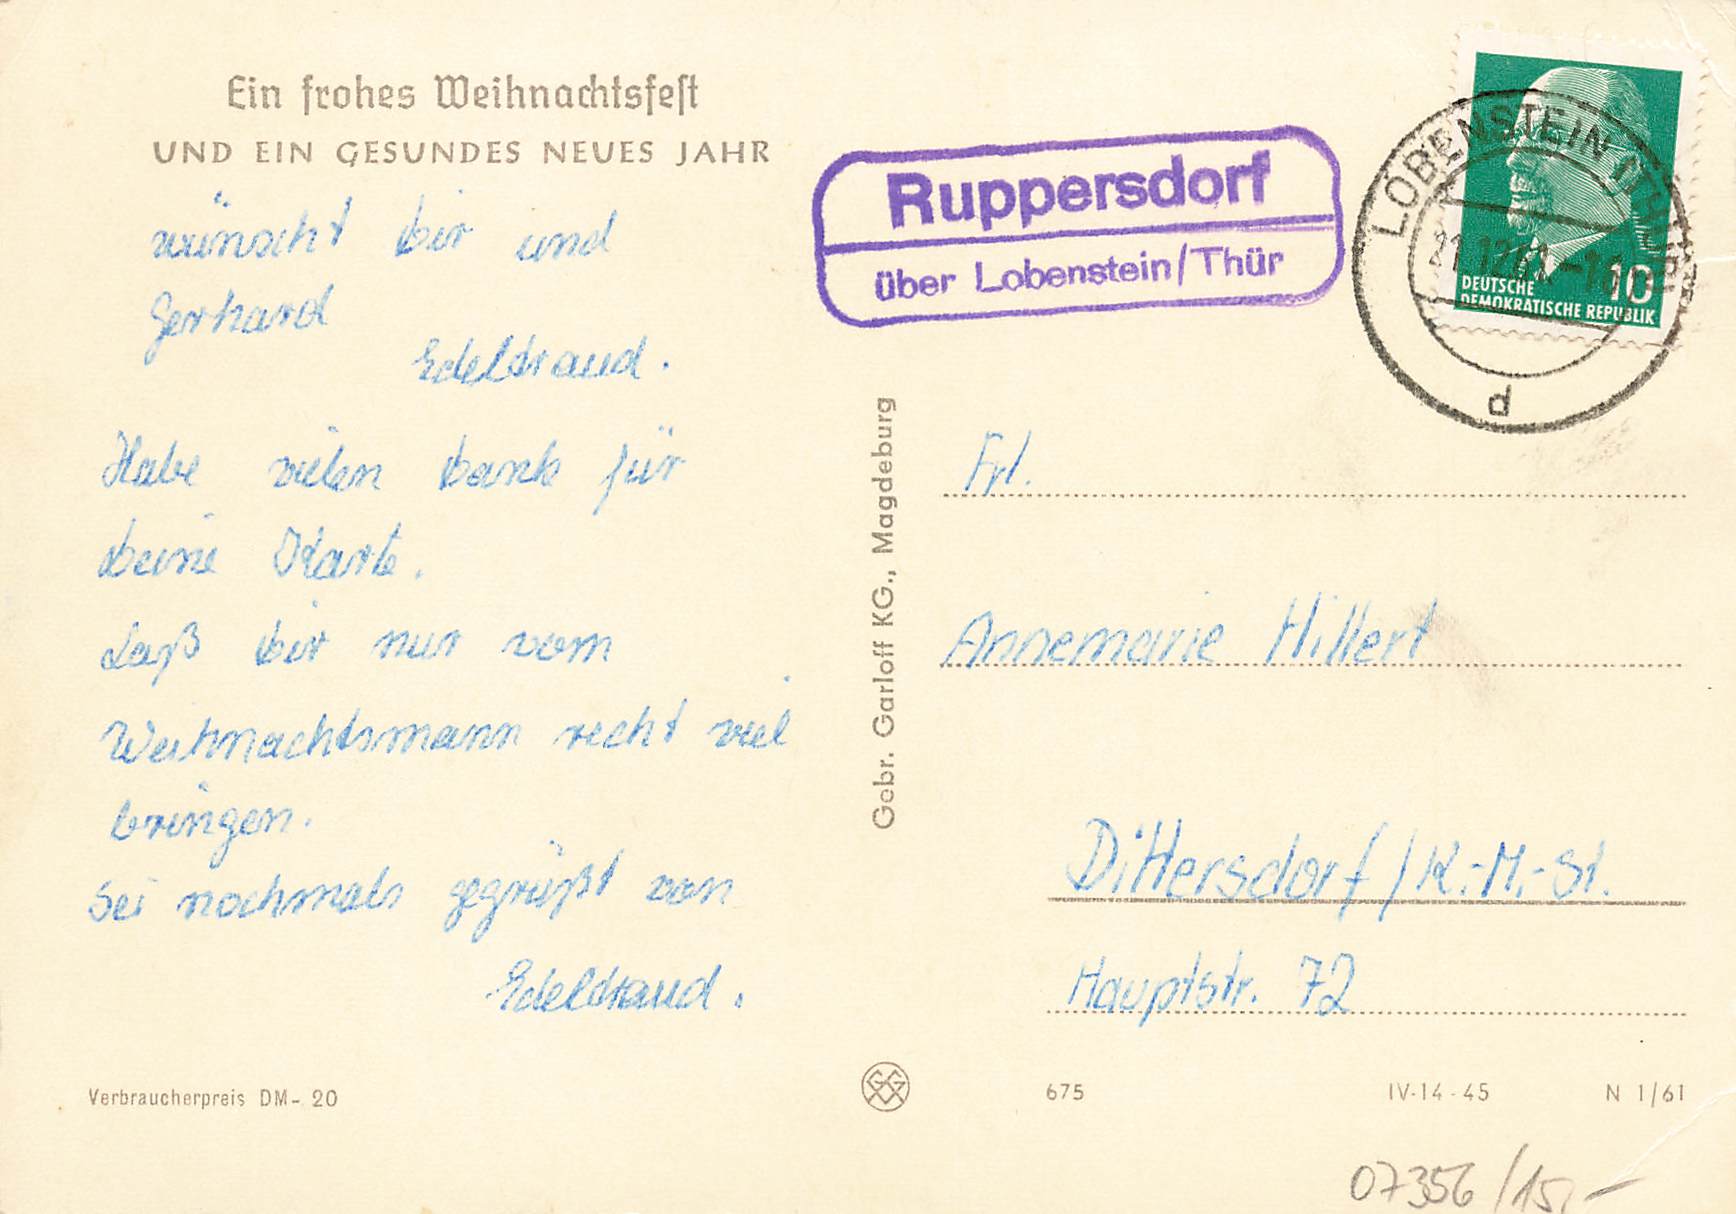 Ein frohes Weihnachtsfest
UND EIN GESUNDES NEUES JAHR
wünscht dir und
Gerhard
Edeldraud.
Habe vielen dank für
deine Karte.
Laß dir nur vom
Weihnachtsmann recht viel
bringen.
Sei nochmals gegrüßt von
Edeldraud.
Verbraucherpreis DM -,20
Gebr. Garloff KG., Magdeburg
Ruppersdorf
über Lobenstein/Thür
LOBENSTEIN (THÜR)
21.12.61.-16
d
10
DEUTSCHE
DEMOKRATISCHE REPUBLIK
Frl.
Annemarie Hillert
Dittersdorf/K.-M.-St.
Hauptstr. 72
675
IV-14-45
N 1/61
07356/15,-